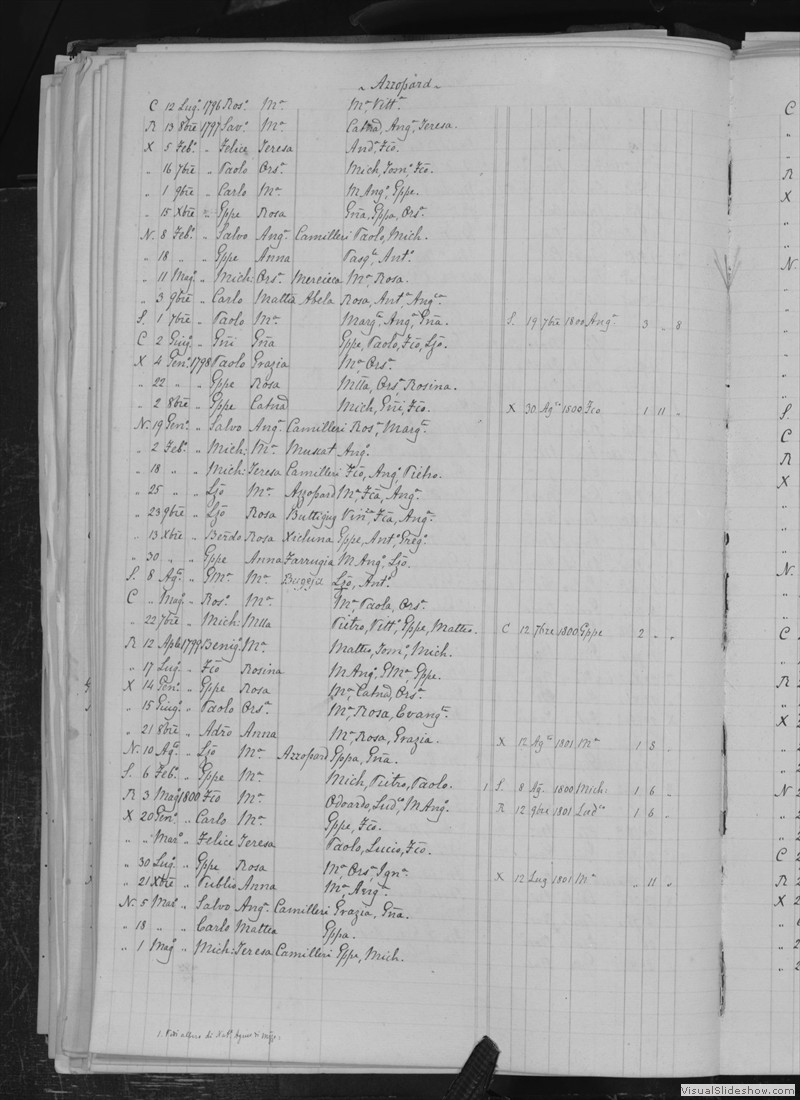 Azzopard
C 12 Lug. 1796 Ros. Ma. Ma, Vitta.
R 13 8bre 1797 Sav. Ma. Catnd, Anga, Teresa.
X 5 Feb. „ Felice Teresa And., Fco.
„ 16 7bre „ Paolo Orsa. Mich, Tom., Fco.
„ 1 9bre „ Carlo Ma. M Ang., Gppe.
„ 15 Xbre „ Gppe Rosa Gña, Gppa, Orsa.
N. 8 Feb. „ Salvo Anga. Camilleri Paolo, Mich.
„ 18 „ „ Gppe Anna Pasqle, Anto.
„ 11 Mag. „ Mich: Orsa. Mercieca Ma, Rosa.
„ 3 9bre „ Carlo Mattea Abela Rosa, Anta, Angca.
S. 1 7bre „ Paolo Ma. Marga, Anga, Gña. S. 19 7bre 1800 Anga 3 „ 8
C 2 Giug. „ Gñi Gña Gppe, Paolo, Fco, Ljo.
X 4 Gen. 1798 Paolo Grazia Ma, Orsa.
„ 22 „ „ Gppe Rosa Mtta, Orsa, Rosina.
„ 2 8bre „ Gppe Catnd Mich, Gñi, Fco. X 30 Agto 1800 Fco 1 11 „
N. 19 Gen. „ Salvo Anga. Camilleri Rosa, Marga.
„ 2 Feb. „ Mich: Ma. Muscat Ang.
„ 18 „ „ Mich: Teresa Camilleri Fco, Ang. Pietro.
„ 25 „ „ Ljo Ma. Azzopard Ma, Fca, Anga.
„ 23 9bre „ Ljo Rosa Buttigieg Vinza, Fca, Anga.
„ 13 Xbre „ Bendo Rosa Xicluna Gppe, Anto, Greg.
„ 30 „ „ Gppe Anna Farrugia M Ang., Ljo.
S. 8 Ago. „ GMa. Ma. Bugeja Ljo, Anto.
C „ Mag. „ Ros. Ma. Ma, Paola, Orsa.
„ 22 7bre „ Mich: Mtta Pietro, Vitta, Gppe, Matteo. C 12 7bre 1800 Gppe 2 „ „
R 12 Aple 1799 Benig. Ma. Matteo, Tom., Mich.
„ 17 Lug. „ Fco Rosina M Ang., GMa, Gppe.
X 14 Gen. „ Gppe Rosa Ma, Catnd, Orsa.
„ 15 Giug. „ Paolo Orsa. Ma, Rosa, Evanga.
„ 21 8bre „ Adro Anna Ma, Rosa, Grazia. X 12 Agto 1801 Ma 1 3 „
N. 10 Ago. „ Ljo Ma. Azzopard Gppa, Gña.
S. 6 Feb. „ Gppe Ma. Mich, Pietro, Paolo. 1 S. 8 Ag. 1800 Mich: 1 6 „
R 3 Mag. 1800 Fco Ma. Odoardo, Ludo, M Ang. R 12 9bre 1801 Ludco 1 6 „
X 20 Gen. „ Carlo Ma. Gppe, Fco.
„ „ Mar. „ Felice Teresa Paolo, Lucio, Fco.
„ 30 Lug. „ Gppe Rosa Ma, Orsa, Igna.
„ 21 Xbre „ Publio Anna Ma, Anga. X 12 Lug 1801 Ma „ 11 „
N. 5 Mar. „ Salvo Anga. Camilleri Grazia, Gña.
„ 18 „ „ Carlo Mattea Gppa.
„ 1 Mag. „ Mich: Teresa Camilleri Gppe, Mich.
VisualSlideshow.com